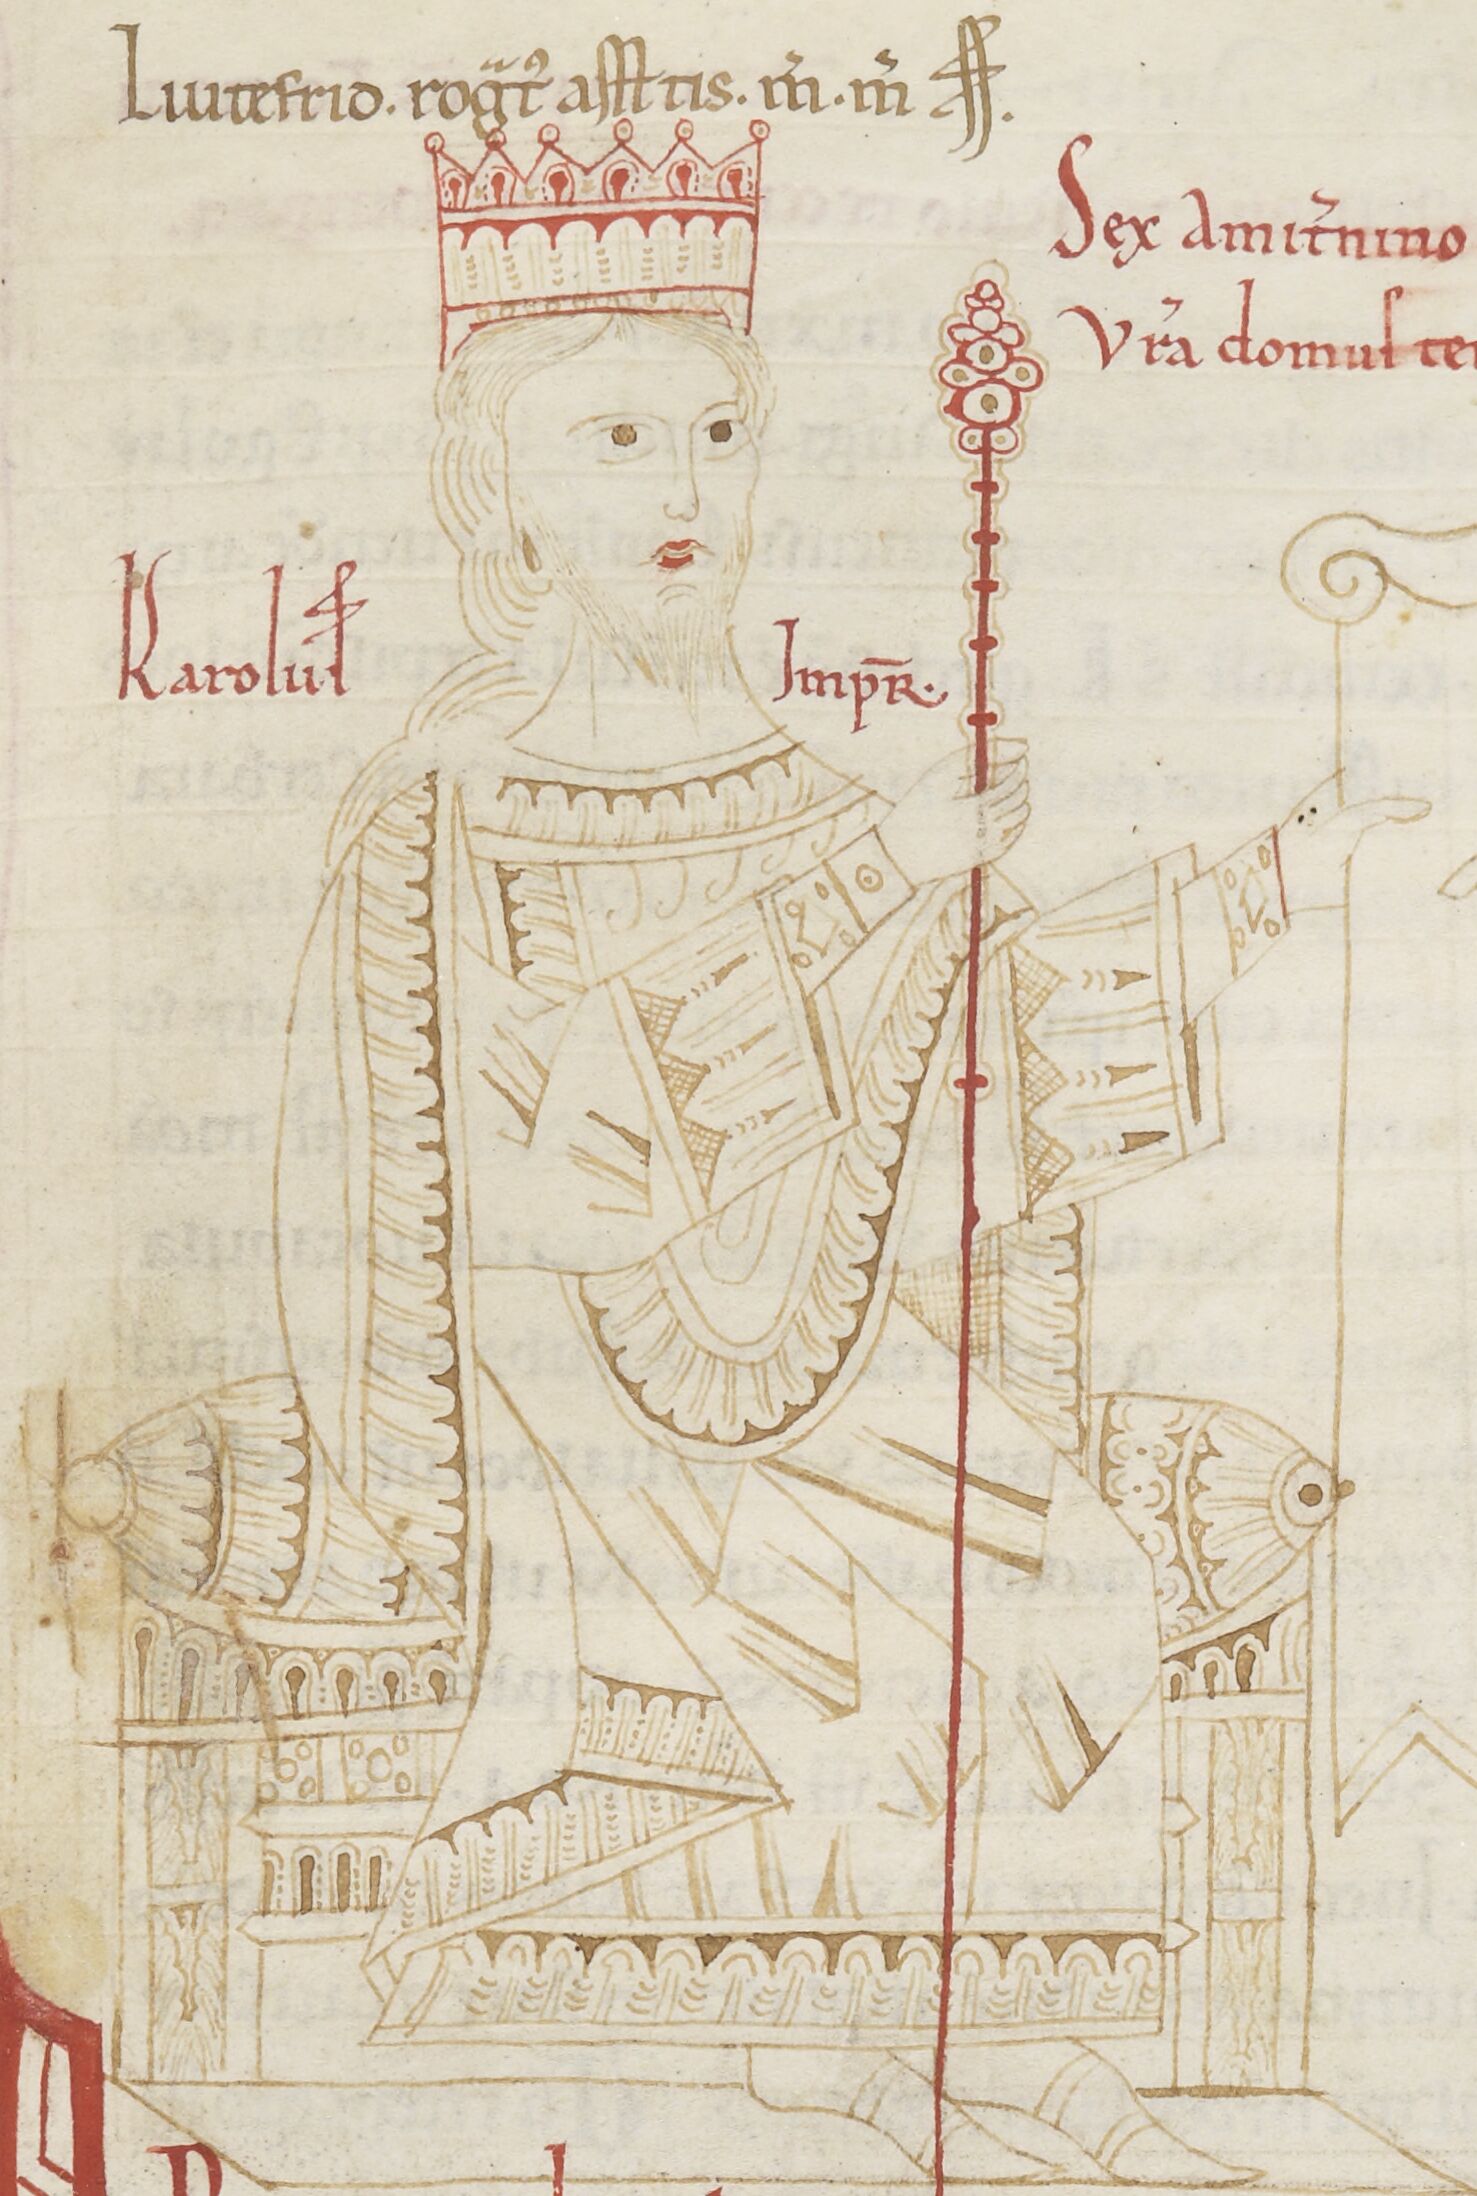 Luitefrid. rogat᷒ assᷓtis. m̅. m̅ ſſ.
Sex Amit̅nino
Vr̅a domus te
Karolus
Imp̅R.